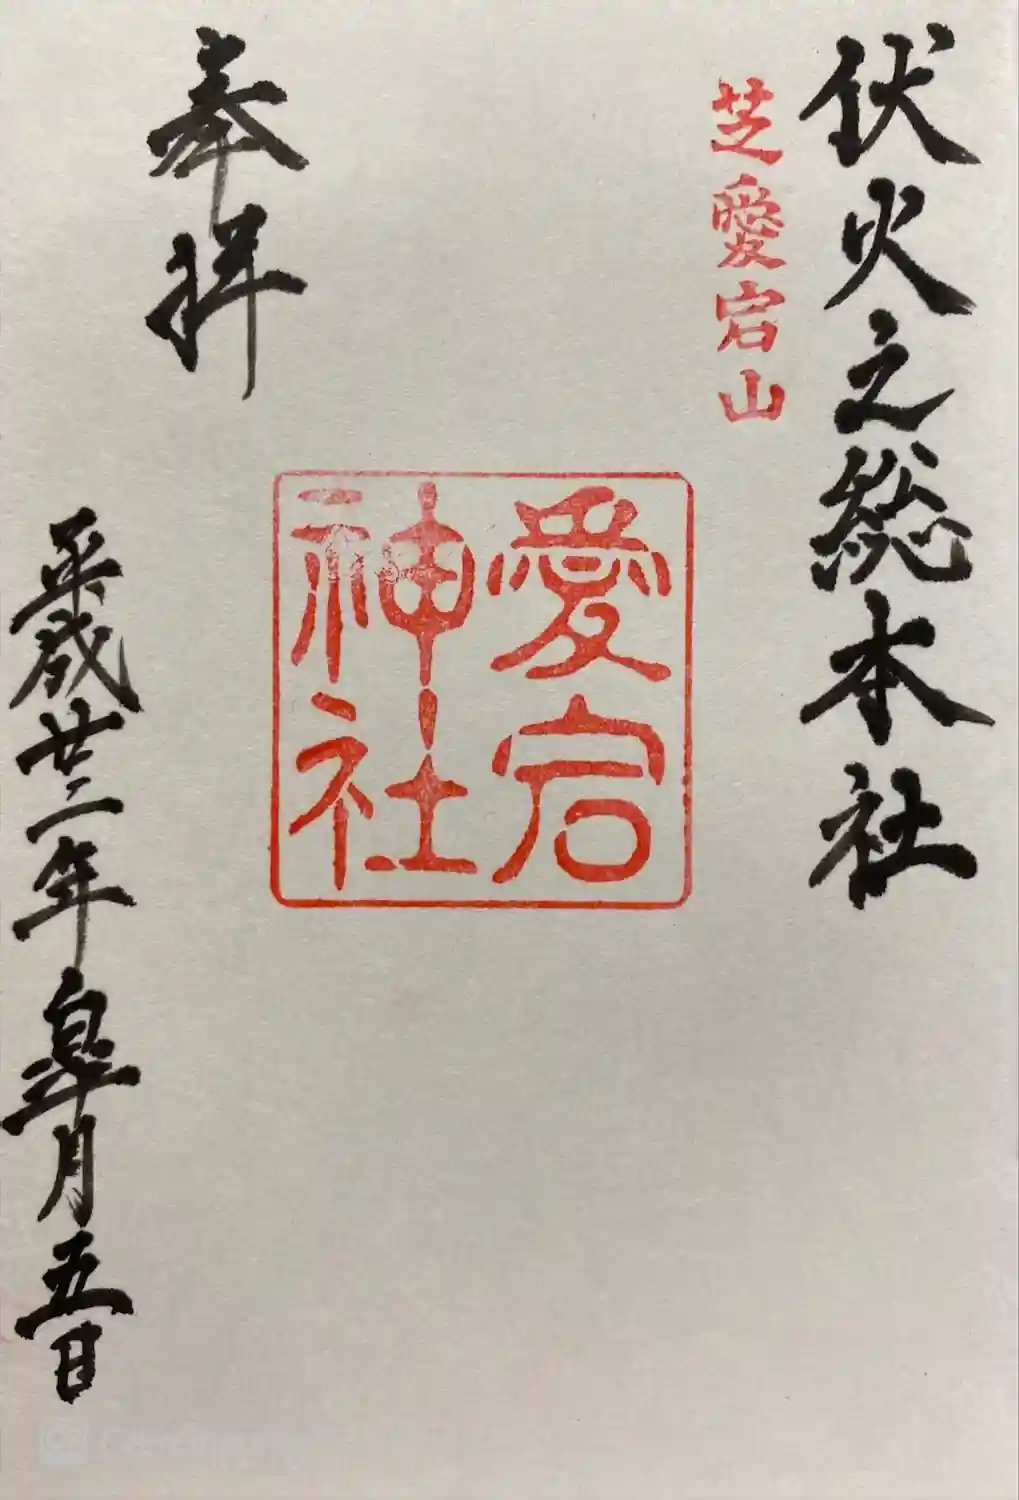 伏火之総本社
芝愛宕山
愛宕
神社
奉拝
平成廿二年皐月五日